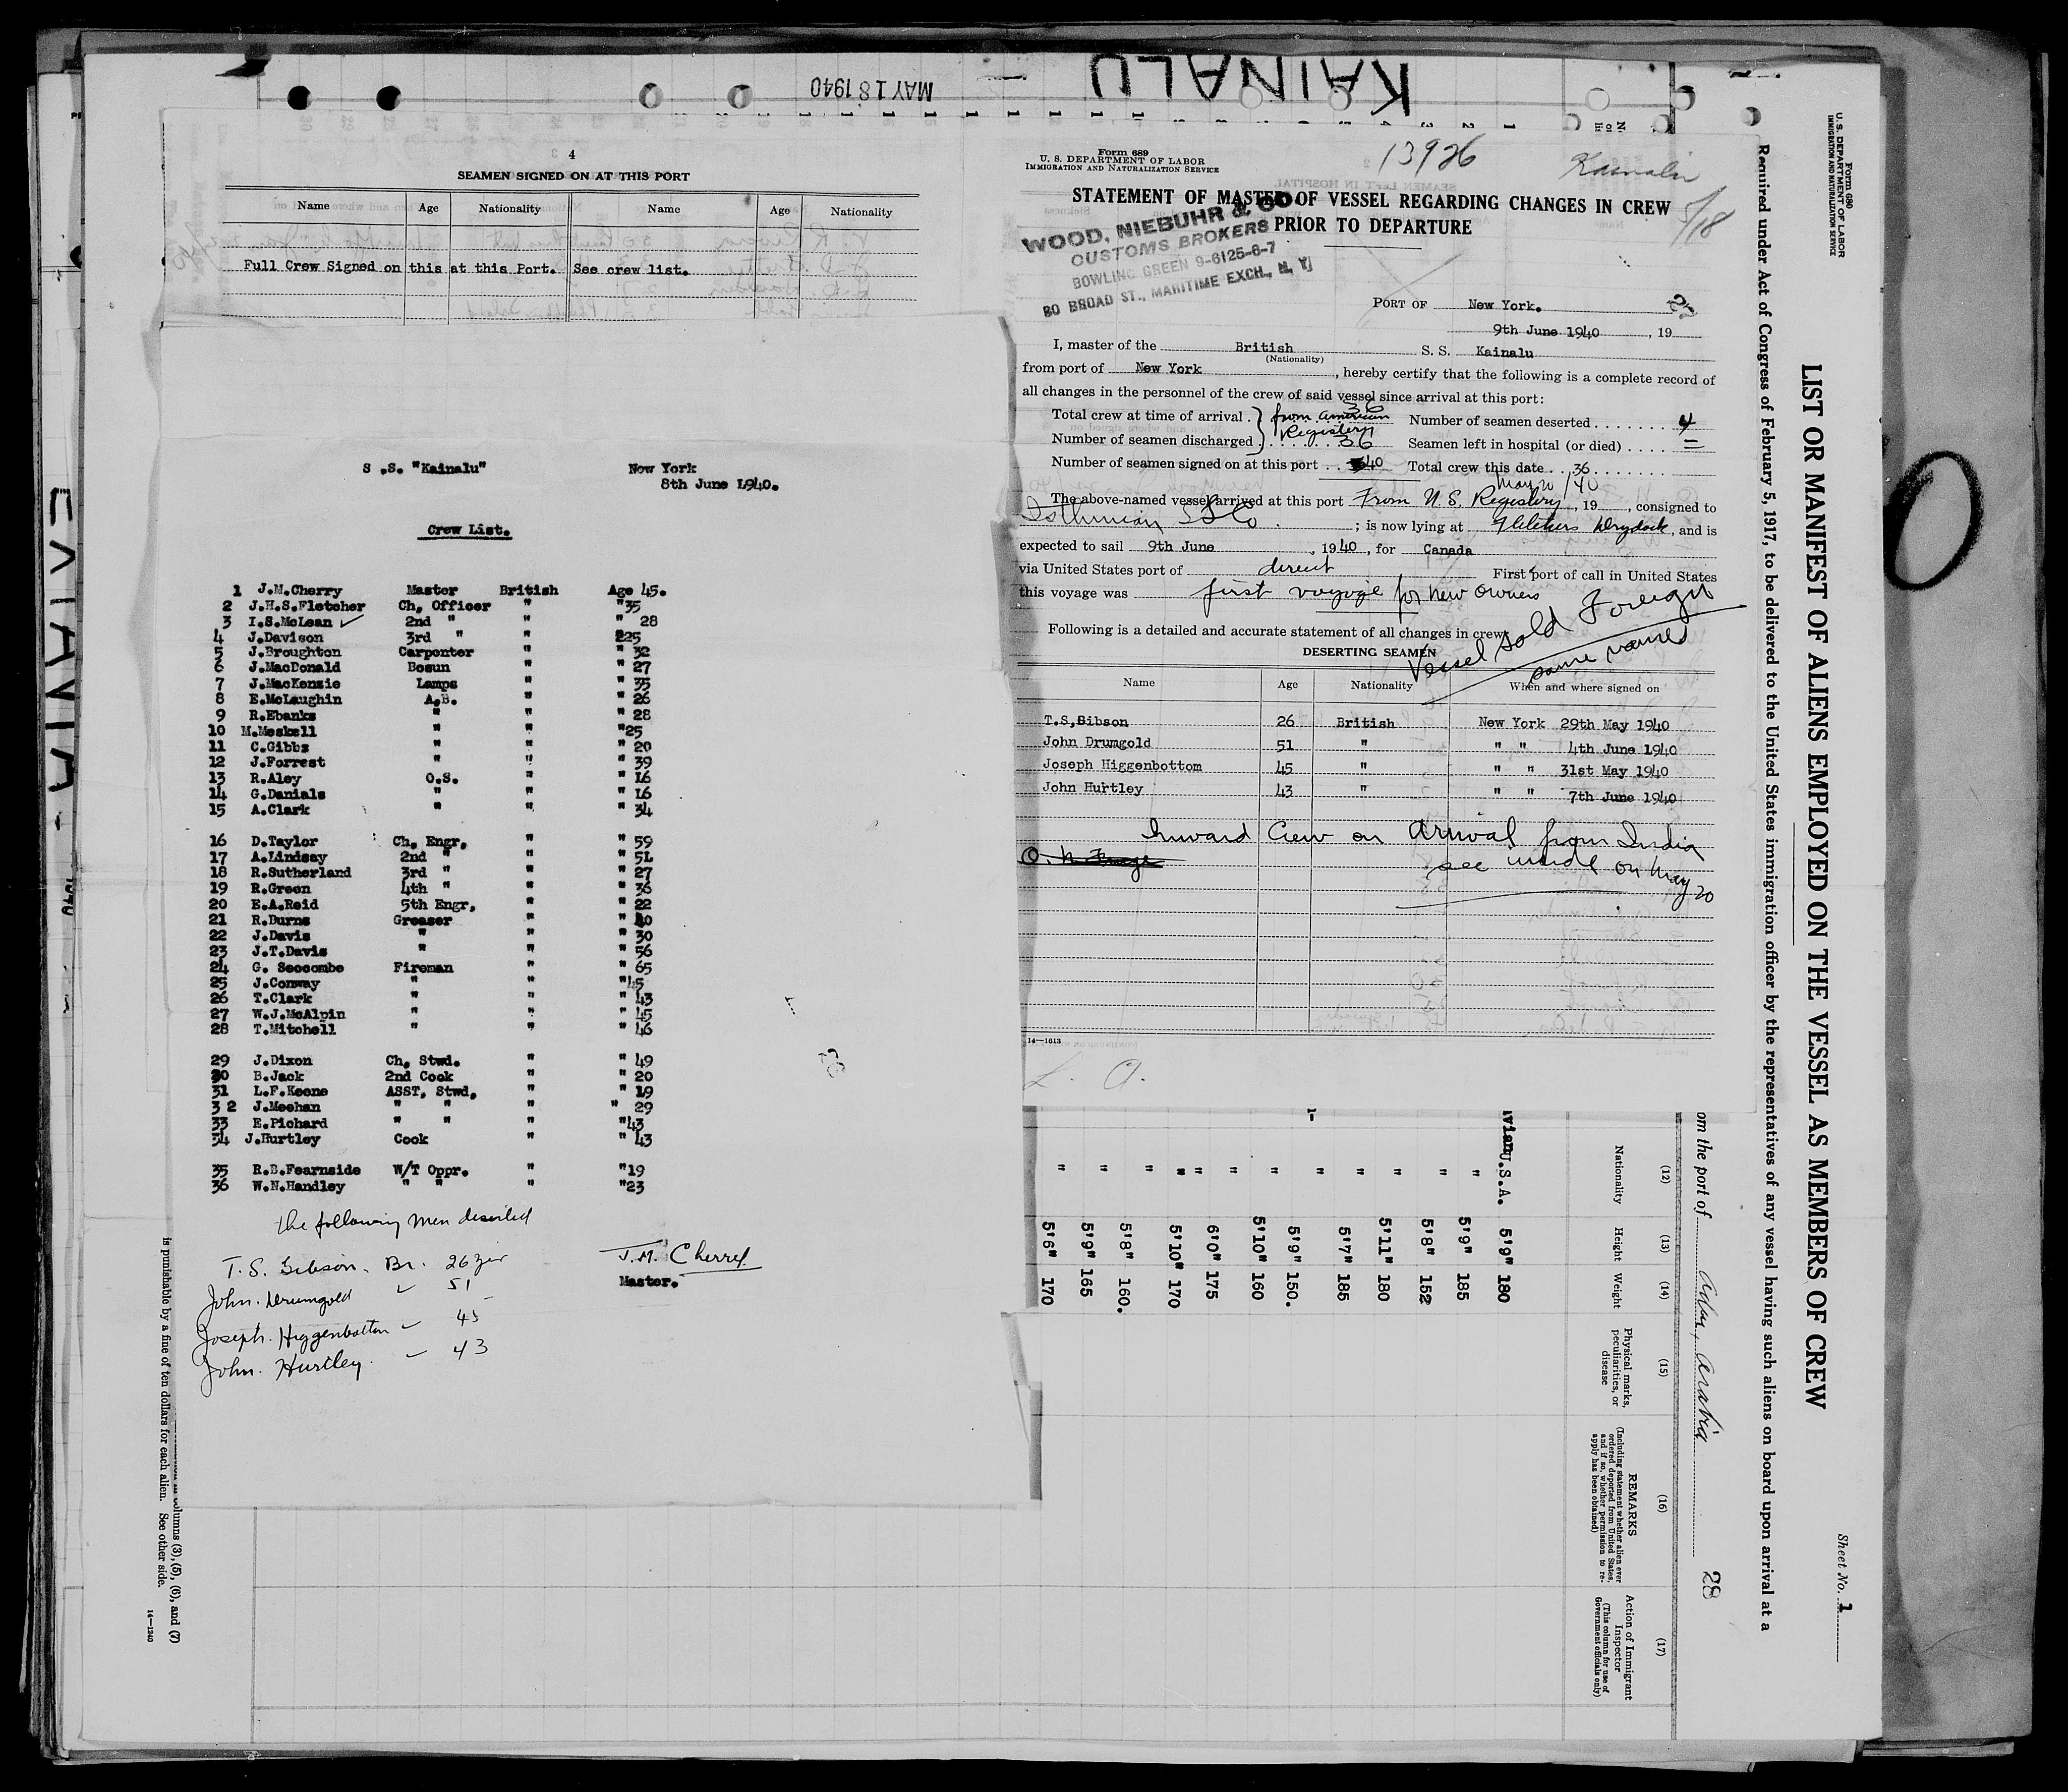 KAINALU
MAY 18 1940
4
SEAMEN SIGNED ON AT THIS PORT
Name Age Nationality Name Age Nationality
Full Crew Signed on this at this Port. See crew list.
S .S. "Kainalu" New York
8th June 1940.
Crew List.
1 J.M.Cherry Master British Age 45.
2 J.H.S.Fletcher Ch, Officer " "35
3 I.S.McLean ✓ 2nd " " " 28
4 J.Davison 3rd " " 225
5 J.Broughton Carpenter " " 32
6 J.MacDonald Bosun " " 27
7 J.MacKenzie Lamps " " 35
8 E.McLaughin A.B. " " 26
9 R.Ebanks " " " 28
10 M.Meskell " " "25
11 C.Gibbs " " " 20
12 J.Forrest " " " 39
13 R.Aley O.S. " " 16
14 G.Danials " " " 16
15 A.Clark " " " 34
16 D.Taylor Ch, Engr, " " 59
17 A.Lindsay 2nd " " " 51
18 R.Sutherland 3rd " " " 27
19 R.Green 4th " " " 36
20 E.A.Reid 5th Engr, " " 22
21 R.Burns Greaser " " 40
22 J.Davis " " " 30
23 J.T.Davis " " " 56
24 G. Seccombe Fireman " " 65
25 J.Conway " " "45
26 T.Clark " " " 43
27 W.J.McAlpin " " " 45
28 T.Mitchell " " " 46
29 J.Dixon Ch, Stwd. " " 49
30 B.Jack 2nd Cook " " 20
31 L.F.Keene ASST, Stwd, " " 19
3 2 J.Meehan " " " " 29
33 E.Pichard " " " "43
34 J.Hurtley Cook " " 43
35 R.B.Fearnside W/T Oppr. " "19
36 W.N.Handley " " " "23
the following men deserted
T.S. Gibson. Br. 26 yrs
John. Drumgold ✓ 51
Joseph. Higgenbottom ✓ 45
John. Hurtley. ✓ 43
J.M. Cherry
Master.
Form 689
U. S. DEPARTMENT OF LABOR
IMMIGRATION AND NATURALIZATION SERVICE
13926
Kainalu
5/18
STATEMENT OF MASTER OF VESSEL REGARDING CHANGES IN CREW
PRIOR TO DEPARTURE
WOOD, NIEBUHR & CO.
CUSTOMS BROKERS
BOWLING GREEN 9-6125-6-7
80 BROAD ST., MARITIME EXCH., N. Y.
PORT OF New York.
9th June 1940, 19
I, master of the British S. S. Kainalu
(Nationality)
from port of New York, hereby certify that the following is a complete record of
all changes in the personnel of the crew of said vessel since arrival at this port:
Total crew at time of arrival . } from American 36 Number of seamen deserted . . . . . . . . 4
Number of seamen discharged } Registery 36 Seamen left in hospital (or died) . . . . =
Number of seamen signed on at this port . . 40 Total crew this date . . 36 . . . . . . .
The above-named vessel arrived at this port From U.S. Registery May 20/40, 19, consigned to
Isthmian SS Co. ; is now lying at Fletchers Drydock, and is
expected to sail 9th June, 1940, for Canada
via United States port of direct First port of call in United States
this voyage was first voyage for new owners
Vessel sold Foreign
same name
Following is a detailed and accurate statement of all changes in crew:
DESERTING SEAMEN
Name Age Nationality When and where signed on
T.S,Gibson 26 British New York 29th May 1940
John Drumgold 51 " " " 4th June 1940
Joseph Higgenbottom 45 " " " 31st May 1940
John Hurtley 43 " " " 7th June 1940
Inward Crew on Arrival from India
see inside on May 20
14—1613
L. A.
Form 680
U. S. DEPARTMENT OF LABOR
IMMIGRATION AND NATURALIZATION SERVICE
Sheet No. 1
LIST OR MANIFEST OF ALIENS EMPLOYED ON THE VESSEL AS MEMBERS OF CREW
Required under Act of Congress of February 5, 1917, to be delivered to the United States immigration officer by the representatives of any vessel having such aliens on board upon arrival at a
om the port of Aden, Arabia 28
(12) (13) (14) (15) (16) (17)
Nationality Height Weight
Physical marks, peculiarities, or disease
REMARKS
(Including statement whether alien ever ordered deported from United States, and if so, whether permission to reapply has been obtained)
Action of Immigrant Inspector
(This column for use of Government officials only)
U.S.A. 5'9" 180
" 5'9" 185
" 5'8" 152
" 5'11" 180
" 5'7" 185
" 5'9" 150.
" 5'10" 160
" 6'0" 175
" 5'10" 170
" 5'8" 160.
" 5'9" 165
" 5'6" 170
columns (3), (5), (6), and (7)
is punishable by a fine of ten dollars for each alien. See other side.
14—1240